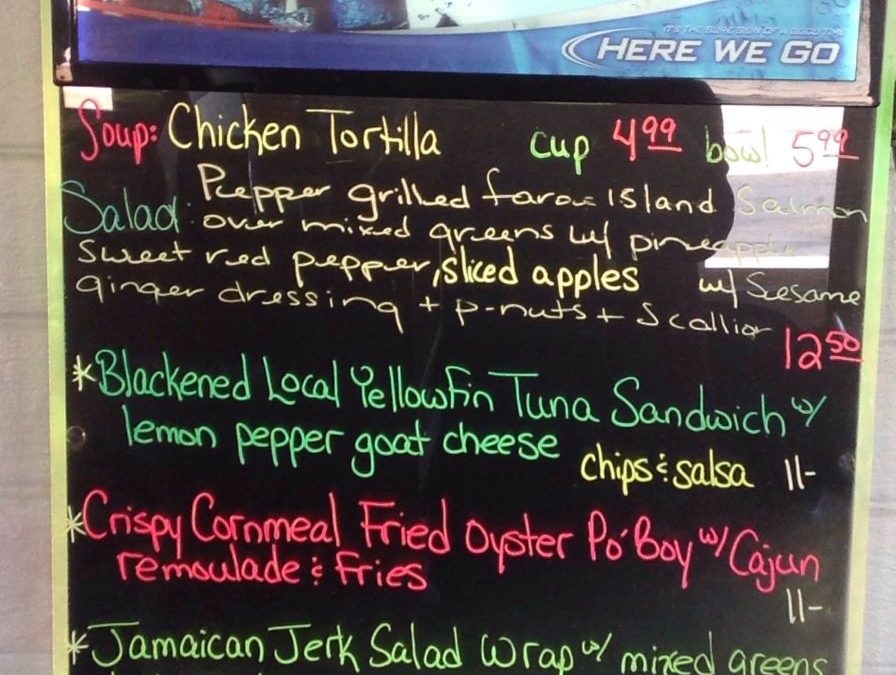 IT'S THE SURE SIGN OF A GOOD TIME
HERE WE GO
Soup: Chicken Tortilla cup 4.99 bowl 5.99
Salad: Pepper grilled faroe Island Salmon
over mixed greens w/ pineapple
sweet red pepper, sliced apples w/ Sesame
ginger dressing + p-nuts + Scallion
12.50
*Blackened Local Yellowfin Tuna Sandwich w/
lemon pepper goat cheese
chips & salsa 11-
*Crispy Cornmeal Fried Oyster Po'Boy w/ Cajun
remoulade & fries
11-
*Jamaican Jerk Salad Wrap w/ mixed greens